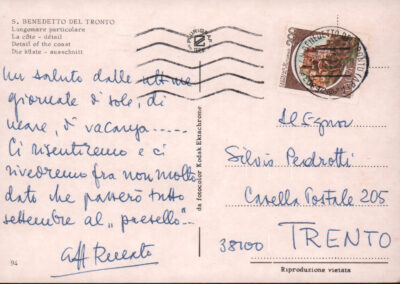 S. BENEDETTO DEL TRONTO
Lungomare particolare
La côte - détail
Detail of the coast
Die küste - ausschnitt
Un saluto dalle ultime
giornate di sole, di
mare, di vacanza.....
Ci risentiremo e ci
rivedremo fra non molto
dato che passerò tutto
settembre al „
aff Renato
94
da fotocolor Kodak Ektachrome
Al Signor
Silvio Pedrotti
Casella Postale 205
38100 TRENTO
Riproduzione vietata